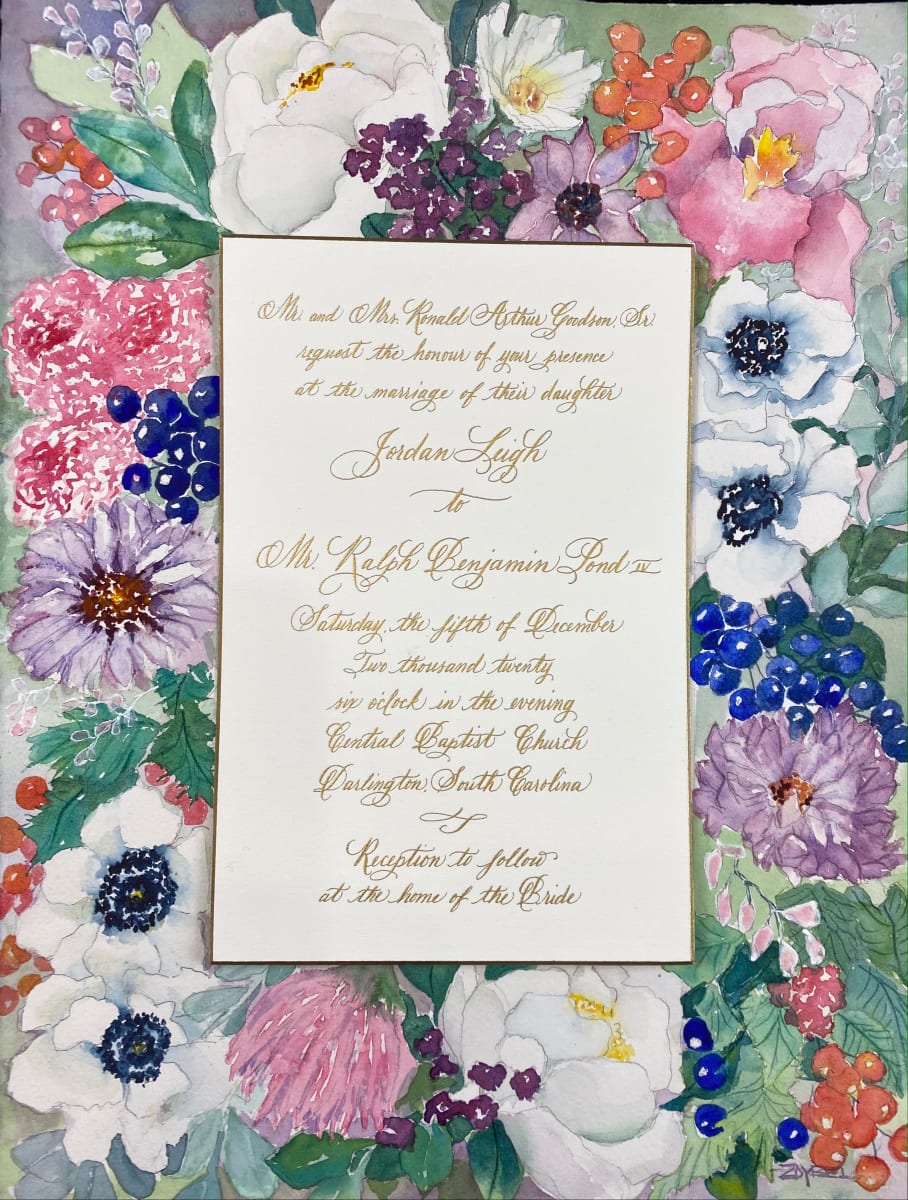 Mr. and Mrs. Ronald Arthur Goodson, Sr.
request the honour of your presence
at the marriage of their daughter
Jordan Leigh
to
Mr. Ralph Benjamin Pond IV
Saturday, the fifth of December
Two thousand twenty
six o'clock in the evening
Central Baptist Church
Darlington, South Carolina
Reception to follow
at the home of the Bride